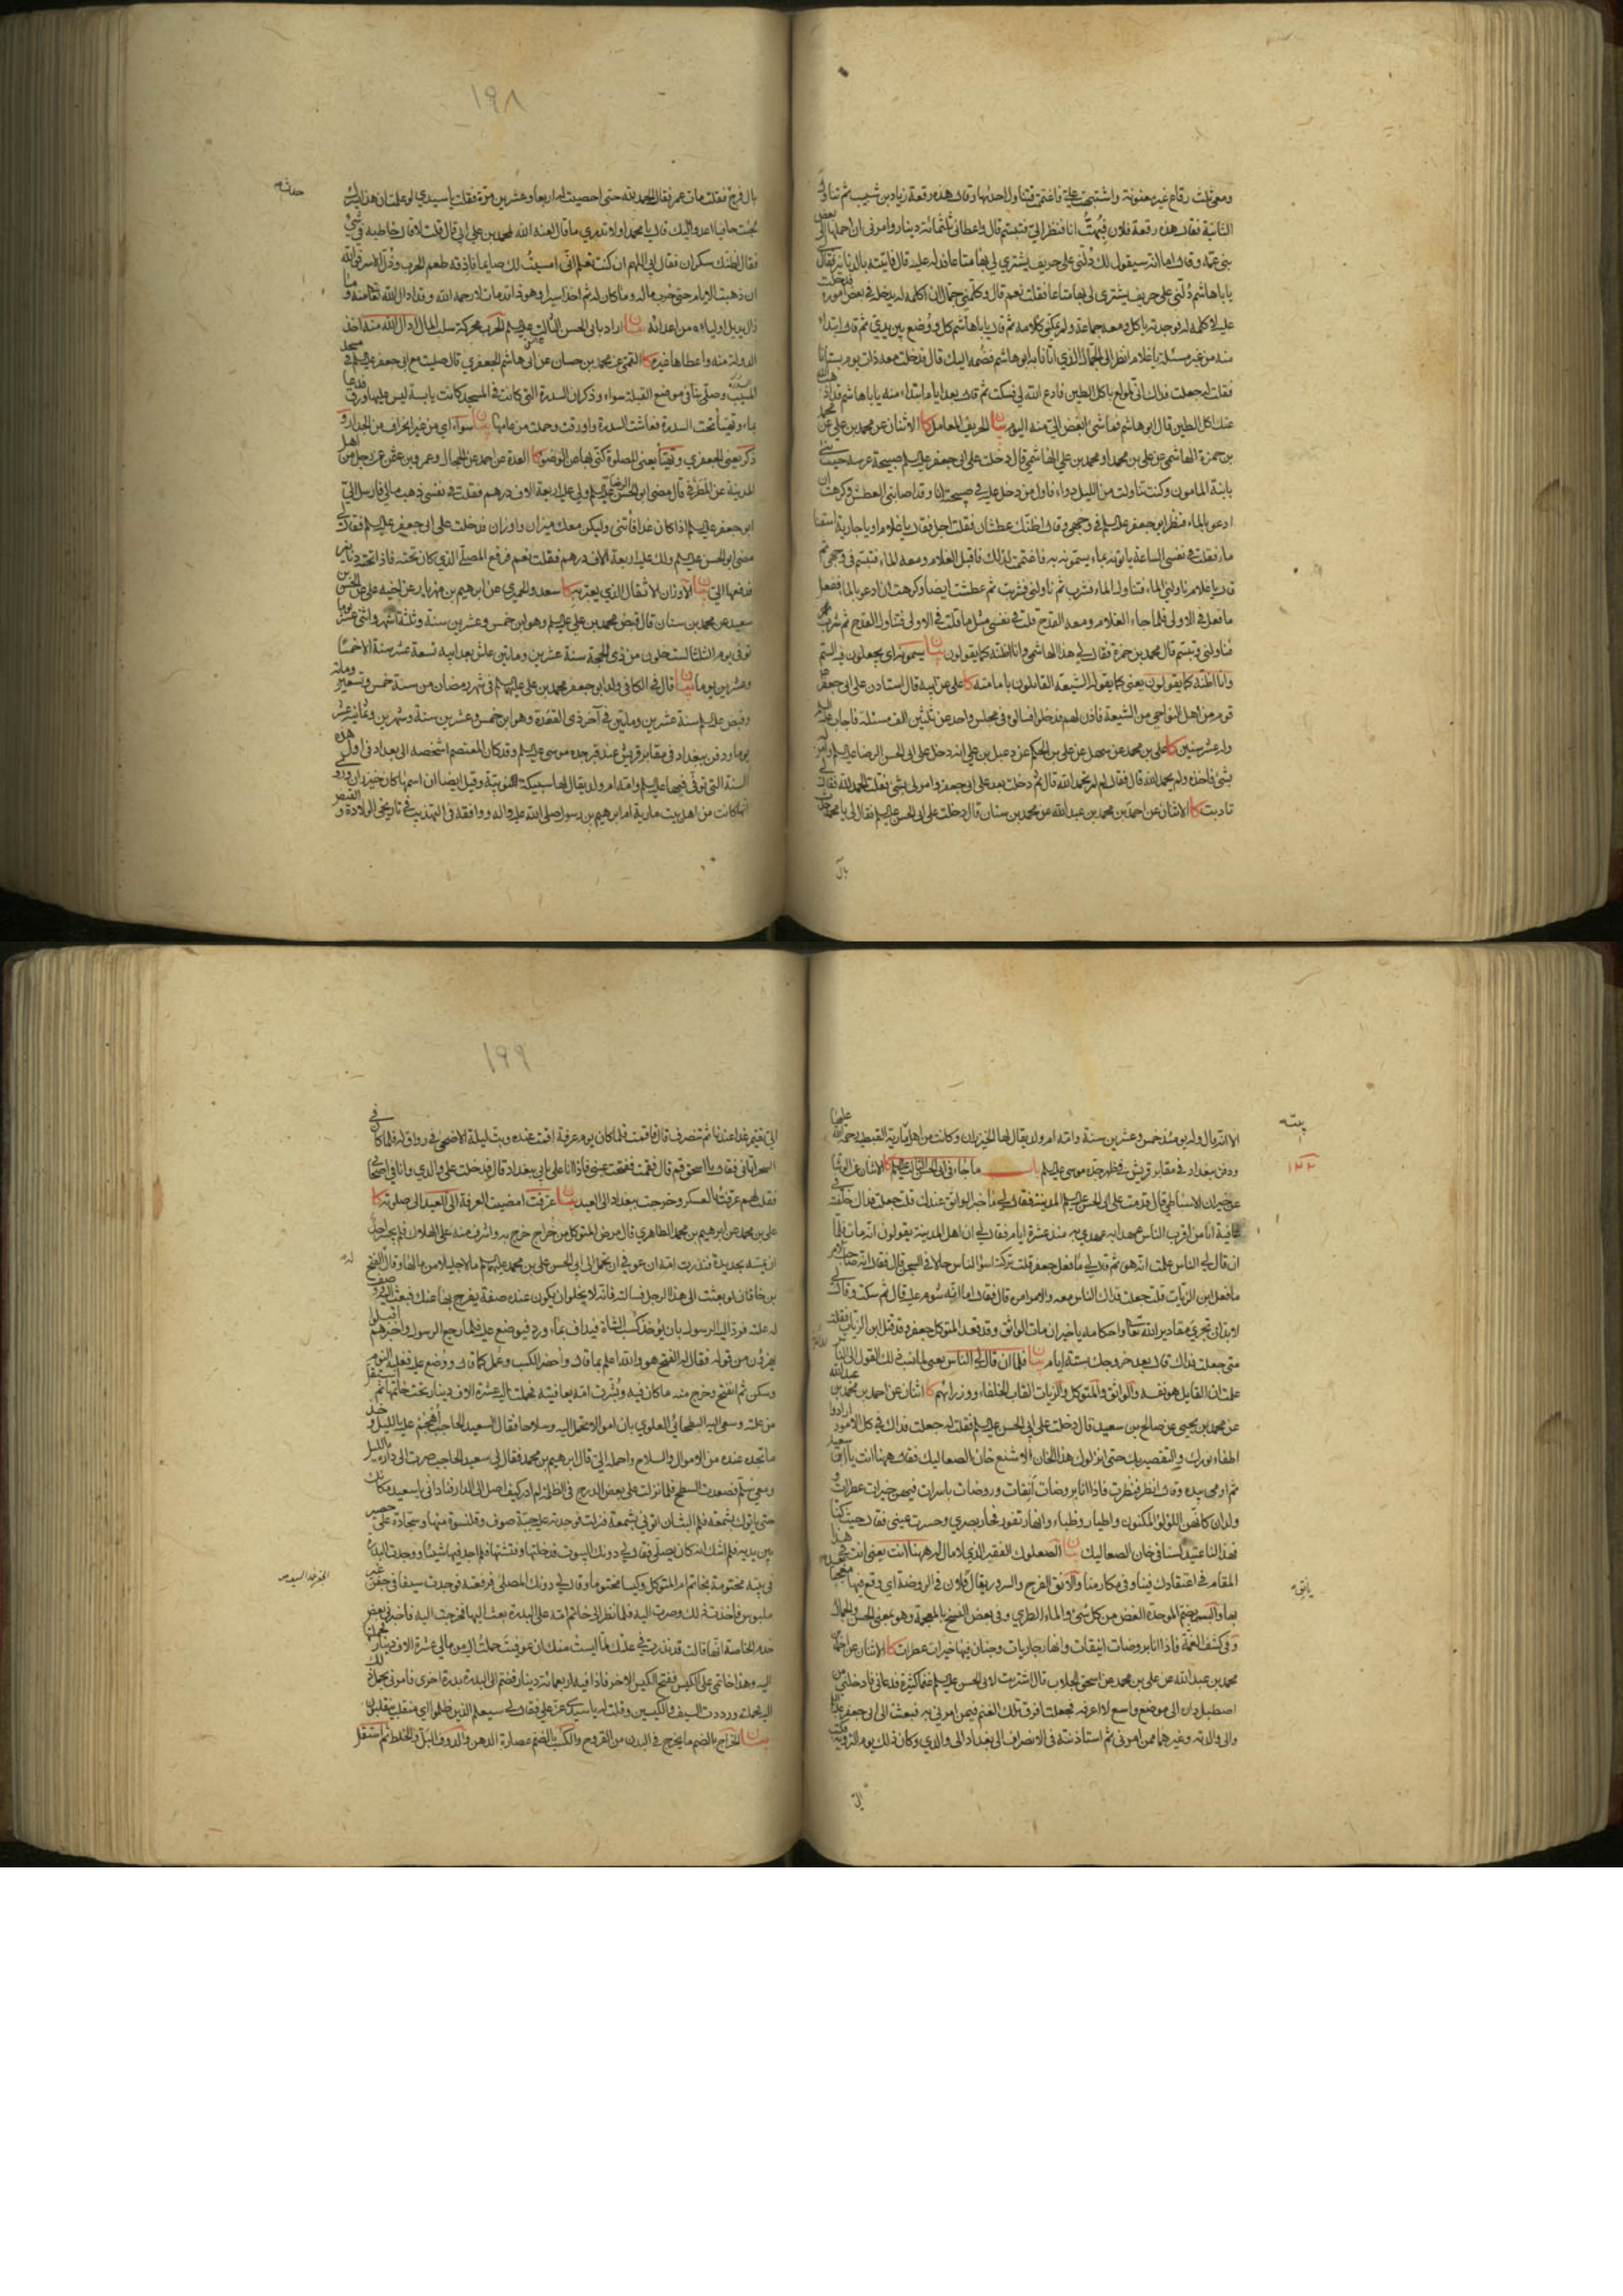 ومعي ثلث رقاع غير معنونة واشتبهت علي فاغتممت فتناول احديها وقال هذه رقعة زياد بن شبيب ثم تناول
الثانية فقال هذه رقعة فلان فبهت انا فنظر الي فتبسم قال واعطاني ثلثمائة دينار وامرني ان احملها الى بعض
بني عمه وقال اما انه سيقول لك دلني على حريف يشتري لي بها متاعا فدله عليه قال فاتيته بالدنانير فقال
يا باهاشم دلني على حريف يشتري لي بها متاعا فقلت نعم قال وكلمني جمال ان اكلمه له يدخله في بعض اموره فدخلت
عليه لاكلمه له فوجدته ياكل ومعه جماعة ولم يمكني كلامه ثم قال يا باهاشم كل ووضع بين يدي ثم قال ابتداء
منه من غير مسئلة يا غلام انظر الى الجمال الذي اتانا به ابو هاشم فضمه اليك قال ودخلت معه ذات يوم بستانا
فقلت له جعلت فداك اني لمولع باكل الطين فادع الله لي فسكت ثم قال بعد ايام ابتداء منه يا باهاشم قد اذهب الله
عنك اكل الطين قال ابو هاشم فما شئ ابغض الي منه اليوم بيان الحريف المعامل كا الاثنان عن محمد بن علي عن محمد
بن حمزة الهاشمي عن علي بن محمد او محمد بن علي الهاشمي قال دخلت على ابي جعفر عليه السلم صبيحة عرسه حيث بنى
بابنة المامون وكنت تناولت من الليل دواء فاول من دخل عليه في صبيحته انا وقد اصابني العطش وكرهت ان
ادعو بالماء فنظر ابو جعفر عليه السلم في وجهي وقال اظنك عطشان فقلت اجل فقال يا غلام او يا جارية اسقنا
ماء فقلت في نفسي الساعة ياتونه بماء يسمونه به فاغتممت لذلك فاقبل الغلام ومعه الماء فتبسم في وجهي ثم
قال يا غلام ناولني الماء فتناول الماء فشرب ثم ناولني فشربت ثم عطشت ايضا وكرهت ان ادعو بالماء ففعل
ما فعل في الاولى فلما جاء الغلام ومعه القدح قلت في نفسي مثل ما قلت في الاولى فتناول القدح ثم شرب
فناولني وتبسم قال محمد بن حمزة فقال لي هذا الهاشمي وانا اظنه كما يقولون بيان يسمونه اي يجعلون فيه السم
وانا اظنه كما يقولون يعني كما يقوله الشيعة القائلون بامامته كا علي عن ابيه قال استاذن على ابي جعفر
قوم من اهل النواحي من الشيعة فاذن لهم فدخلوا فسالوه في مجلس واحد عن ثلثين الف مسئلة فاجاب عليه السلم
وله عشر سنين كا علي بن محمد عن سهل عن علي بن الحكم عن دعبل بن علي انه دخل على ابي الحسن الرضا عليه السلم وامر له
بشئ فاخذه ولم يحمد الله قال فقال له لم لم تحمد الله قال ثم دخلت بعد على ابي جعفر وامر لي بشئ فقلت الحمد لله فقال لي
تادبت كا الاثنان عن احمد بن محمد بن عبد الله عن محمد بن سنان قال دخلت على ابي الحسن عليه السلم فقال لي يا محمد حدث
بال
١٩٨
بال فرج فقلت مات عمر فقال الحمد لله حتى احصيت له اربعا وعشرين مرة فقلت يا سيدي لو علمت ان هذا يسرك
لجئت حافيا اعدو اليك قال يا محمد اولا تدري ما قال لعنه الله لمحمد بن علي ابي قال قلت لا قال خاطبه في شئ
فقال اظنك سكران فقال ابي اللهم ان كنت تعلم اني امسيت لك صايما فاذقه طعم الحرب وذل الاسر فوالله
ان ذهبت الايام حتى حرب ماله وما كان له ثم اخذ اسيرا وهو ذا قد مات لا رحمه الله وقد ادال الله تعالى منه وما
زال يديل اولياءه من اعدائه بيان اراد بابي الحسن الثالث عليه السلم الحرب محركة سلب المال ادال الله منه اخذ
الدولة منه واعطاها غيره كا القمي عن محمد بن حسان عن ابي هاشم الجعفري قال صليت مع ابي جعفر عليه السلم في مسجد
المسيب وصلى بنا في موضع القبلة سواء وذكر ان السدرة التي كانت في المسجد كانت يابسة ليس عليها ورق فدعا
بماء وتهيأ تحت السدرة فعاشت السدرة واورقت وحملت من عامها بيان سواء اي من غير انحراف من الجدار و
ذكر يعني الجعفري وتهيأ يعني للصلوة كنى بها عن الوضوء كا العدة عن احمد عن الحجال وعمرو بن عثمن عن رجل من اهل
المدينة عن المطرفي قال مضى ابو الحسن الرضا عليه السلم ولي عليه اربعة الاف درهم فقلت في نفسي ذهب مالي فارسل الي
ابو جعفر عليه السلم اذا كان غدا فأتني وليكن معك ميزان واوزان فدخلت على ابي جعفر عليه السلم فقال لي
مضى ابو الحسن عليه السلم ولك عليه اربعة الاف درهم فقلت نعم فرفع المصلى الذي كان تحته فاذا تحته دنانير
فدفعها الي بيان الاوزان الاثقال الذي يعتبر به كا سعد والحميري عن ابرهيم بن مهزيار عن اخيه علي عن الحسين بن
سعيد عن محمد بن سنان قال قبض محمد بن علي عليه السلم وهو ابن خمس وعشرين سنة وثلثة اشهر واثنى عشر يوما
توفي يوم الثلثا لست خلون من ذي الحجة سنة عشرين وماتين عاش بعد ابيه تسعة عشر سنة الا خمسا
وعشرين يوما بيان قال في الكافي ولد ابو جعفر محمد بن علي عليهما السلم في شهر رمضان من سنة خمس وتسعين ومائة
وقبض عليه السلم سنة عشرين وماتين في آخر ذي القعدة وهو ابن خمس وعشرين سنة وشهرين وثمانية عشر
يوما ودفن ببغداد في مقابر قريش عند قبر جده موسى عليه السلم وقد كان المعتصم اشخصه الى بغداد في اول هذه
السنة التي توفي فيها عليه السلم وامه ام ولد يقال لها سبيكة النوبية وقيل ايضا ان اسمها كان خيزران وروي
انها كانت من اهل بيت مارية ام ابرهيم بن رسول صلى الله عليه واله ووافقه في التهذيب في تاريخي الولادة و القبض
الا انه قال وله يومئذ خمس وعشرين سنة وامه ام ولد يقال لها الخيزران وكانت من اهل مارية القبطية رحمة الله عليها
ودفن ببغداد في مقابر قريش في ظهر جده موسى عليه السلم باب ما جاء في ابي الحسن الثالث عليه السلم كا الاثنان عن الوشا
عن خيران الاسباطي قال قدمت على ابي الحسن عليه السلم المدينة فقال لي ما خبر الواثق عندك قلت جعلت فداك خلفته في
عافية انا من اقرب الناس عهدا به عهدي به منذ عشرة ايام فقال لي ان اهل المدينة يقولون انه مات فلما
ان قال لي الناس علمت انه هو ثم قال لي ما فعل جعفر قلت تركته اسوأ الناس حالا في السجن قال فقال انه صاحب الامر
ما فعل ابن الزيات قلت جعلت فداك الناس معه والامر امره قال فقال اما انه شوم عليه قال ثم سكت وقال لي
لابد ان تجري مقادير الله تعالى واحكامه يا خيران مات الواثق وقد قعد المتوكل جعفر وقد قتل ابن الزيات فقلت
متى جعلت فداك قال بعد خروجك بستة ايام بيان فلما ان قال لي الناس يعني لما نسب ذلك القول الى الناس
علمت ان القايل هو نفسه والواثق والمتوكل والزيات القاب الخلفاء ووزرائهم كا اثنان عن احمد بن محمد بن عبد الله
عن محمد بن يحيى عن صالح بن سعيد قال دخلت على ابي الحسن عليه السلم فقلت له جعلت فداك في كل الامور ارادوا
اطفاء نورك والتقصير بك حتى انزلوك هذا الخان الاشنع خان الصعاليك فقال ههنا انت يا ابن سعيد
ثم اومى بيده وقال انظر فنظرت فاذا انا بروضات آنقات وروضات باسرات فيهن خيرات عطرات و
ولدان كانهن اللؤلؤ المكنون واطيار وظباء وانهار تفور فحار بصري وحسرت عيني فقال حيث كنا
فهذا لنا عتيد لسنا في خان الصعاليك بيان الصعلوك الفقير الذي لا مال له ههنا انت يعني انت في هذا
المقام في اعتقادك فينا وفي مكارمنا والآنق الفرح والسرور
بها والبسر بضم الموحدة الغض من كل شئ والماء الطري وفي بعض النسخ بالمعجمة وهو بمعنى الحسن والجمال
وفي كشف الغمة فاذا انا بروضات انيقات وانهار جاريات وجنان فيها خيرات عطرات كا الاثنان عن احمد بن
محمد بن عبد الله عن علي بن محمد عن اسحق الجلاب قال اشتريت لابي الحسن عليه السلم غنما كثيرة فدعاني فادخلني من
اصطبل داره الى موضع واسع لا اعرفه فجعلت افرق تلك الغنم فيمن امرني به فبعث الى ابي جعفر
والى والدته وغيرهما ممن امرني ثم استاذنته في الانصراف الى بغداد الى والدي وكان ذلك يوم التروية
١٢٢
١٩٩
الي تقيم غدا عندنا ثم تنصرف قال فاقمت فلما كان يوم عرفة اقمت عنده وبت ليلة الاضحى في رواق له فلما كان في
السحر اتاني فقال يا اسحق قم قال فقمت ففتحت عيني فاذا انا على بابي ببغداد قال فدخلت على والدي وانا في اصحابي
فقلت لهم عرفت بالعسكر وخرجت ببغداد الى العيد بيان عرفت امضيت العرفة الى العيد الى صلوته كا
علي بن محمد عن ابرهيم بن محمد الطاهري قال مرض المتوكل من خراج خرج به واشرف منه على الهلاك فلم يجسر احد
ان يمسه بحديدة فنذرت امه ان عوفي ان تحمل الى ابي الحسن علي بن محمد عليهما السلم مالا جليلا من مالها وقال له الفتح
بن خاقان لو بعثت الى هذا الرجل فسالته فانه لا يخلو ان يكون عنده صفة يفرج بها عنك فبعث اليه ووصف
له علته فرد اليه الرسول بان يؤخذ كسب الشاة فيداف بماء ورد فيوضع عليه فلما رجع الرسول واخبرهم اقبلوا
يهزؤن من قوله فقال له الفتح هو والله اعلم بما قال واحضر الكسب وعمل كما قال ووضع عليه فغلبه النوم
وسكن ثم انفتح وخرج منه ما كان فيه وبشرت امه بعافيته فحملت اليه عشرة الاف دينار تحت خاتمها ثم استقل
من علته وسعى اليه البطحائي العلوي بان اموالا تحمل اليه وسلاحا فقال لسعيد الحاجب اهجم عليه بالليل وخذ
ما تجده عنده من الاموال والسلاح واحمله الي قال ابرهيم بن محمد فقال لي سعيد الحاجب صرت الى داره بالليل
ومعي سلم فصعدت السطح فلما نزلت على بعض الدرج في الظلمة لم ادر كيف اصل الى الدار فناداني يا سعيد مكانك
حتى ياتوك بشمعة فلم البث ان اتوني بشمعة فنزلت فوجدته عليه جبة صوف وقلنسوة منها وسجادة على حصير
بين يديه فلم اشك انه كان يصلي فقال لي دونك البيوت فدخلتها وفتشتها فلم اجد فيها شيئا ووجدت البدرة
في بيته مختومة بخاتم ام المتوكل وكيسا مختوما وقال لي دونك المصلى فرفعته فوجدت سيفا في جفن غير
ملبوس فاخذت ذلك وصرت اليه فلما نظر الى خاتم امه على البدرة بعث اليها فخرجت اليه فاخبرني بعض
خدم الخاصة انها قالت قد نذرت في علتك لما ايست منك ان عوفيت حملت اليه من مالي عشرة الاف دينار فحملتها
اليه وهذا خاتمي على الكيس وفتح الكيس الاخر فاذا فيه اربعمائة دينار فضم الى البدرة بدرة اخرى وامرني بحمل ذلك
اليه فحملت ورددت السيف والكيسين وقلت له يا سيدي عز علي فقال لي سيعلم الذين ظلموا اي منقلب ينقلبون
بيان الخراج بالضم ما يخرج في البدن من القروح والكسب بالضم عصارة الدهن والدوف البل والخلط ثم استقل